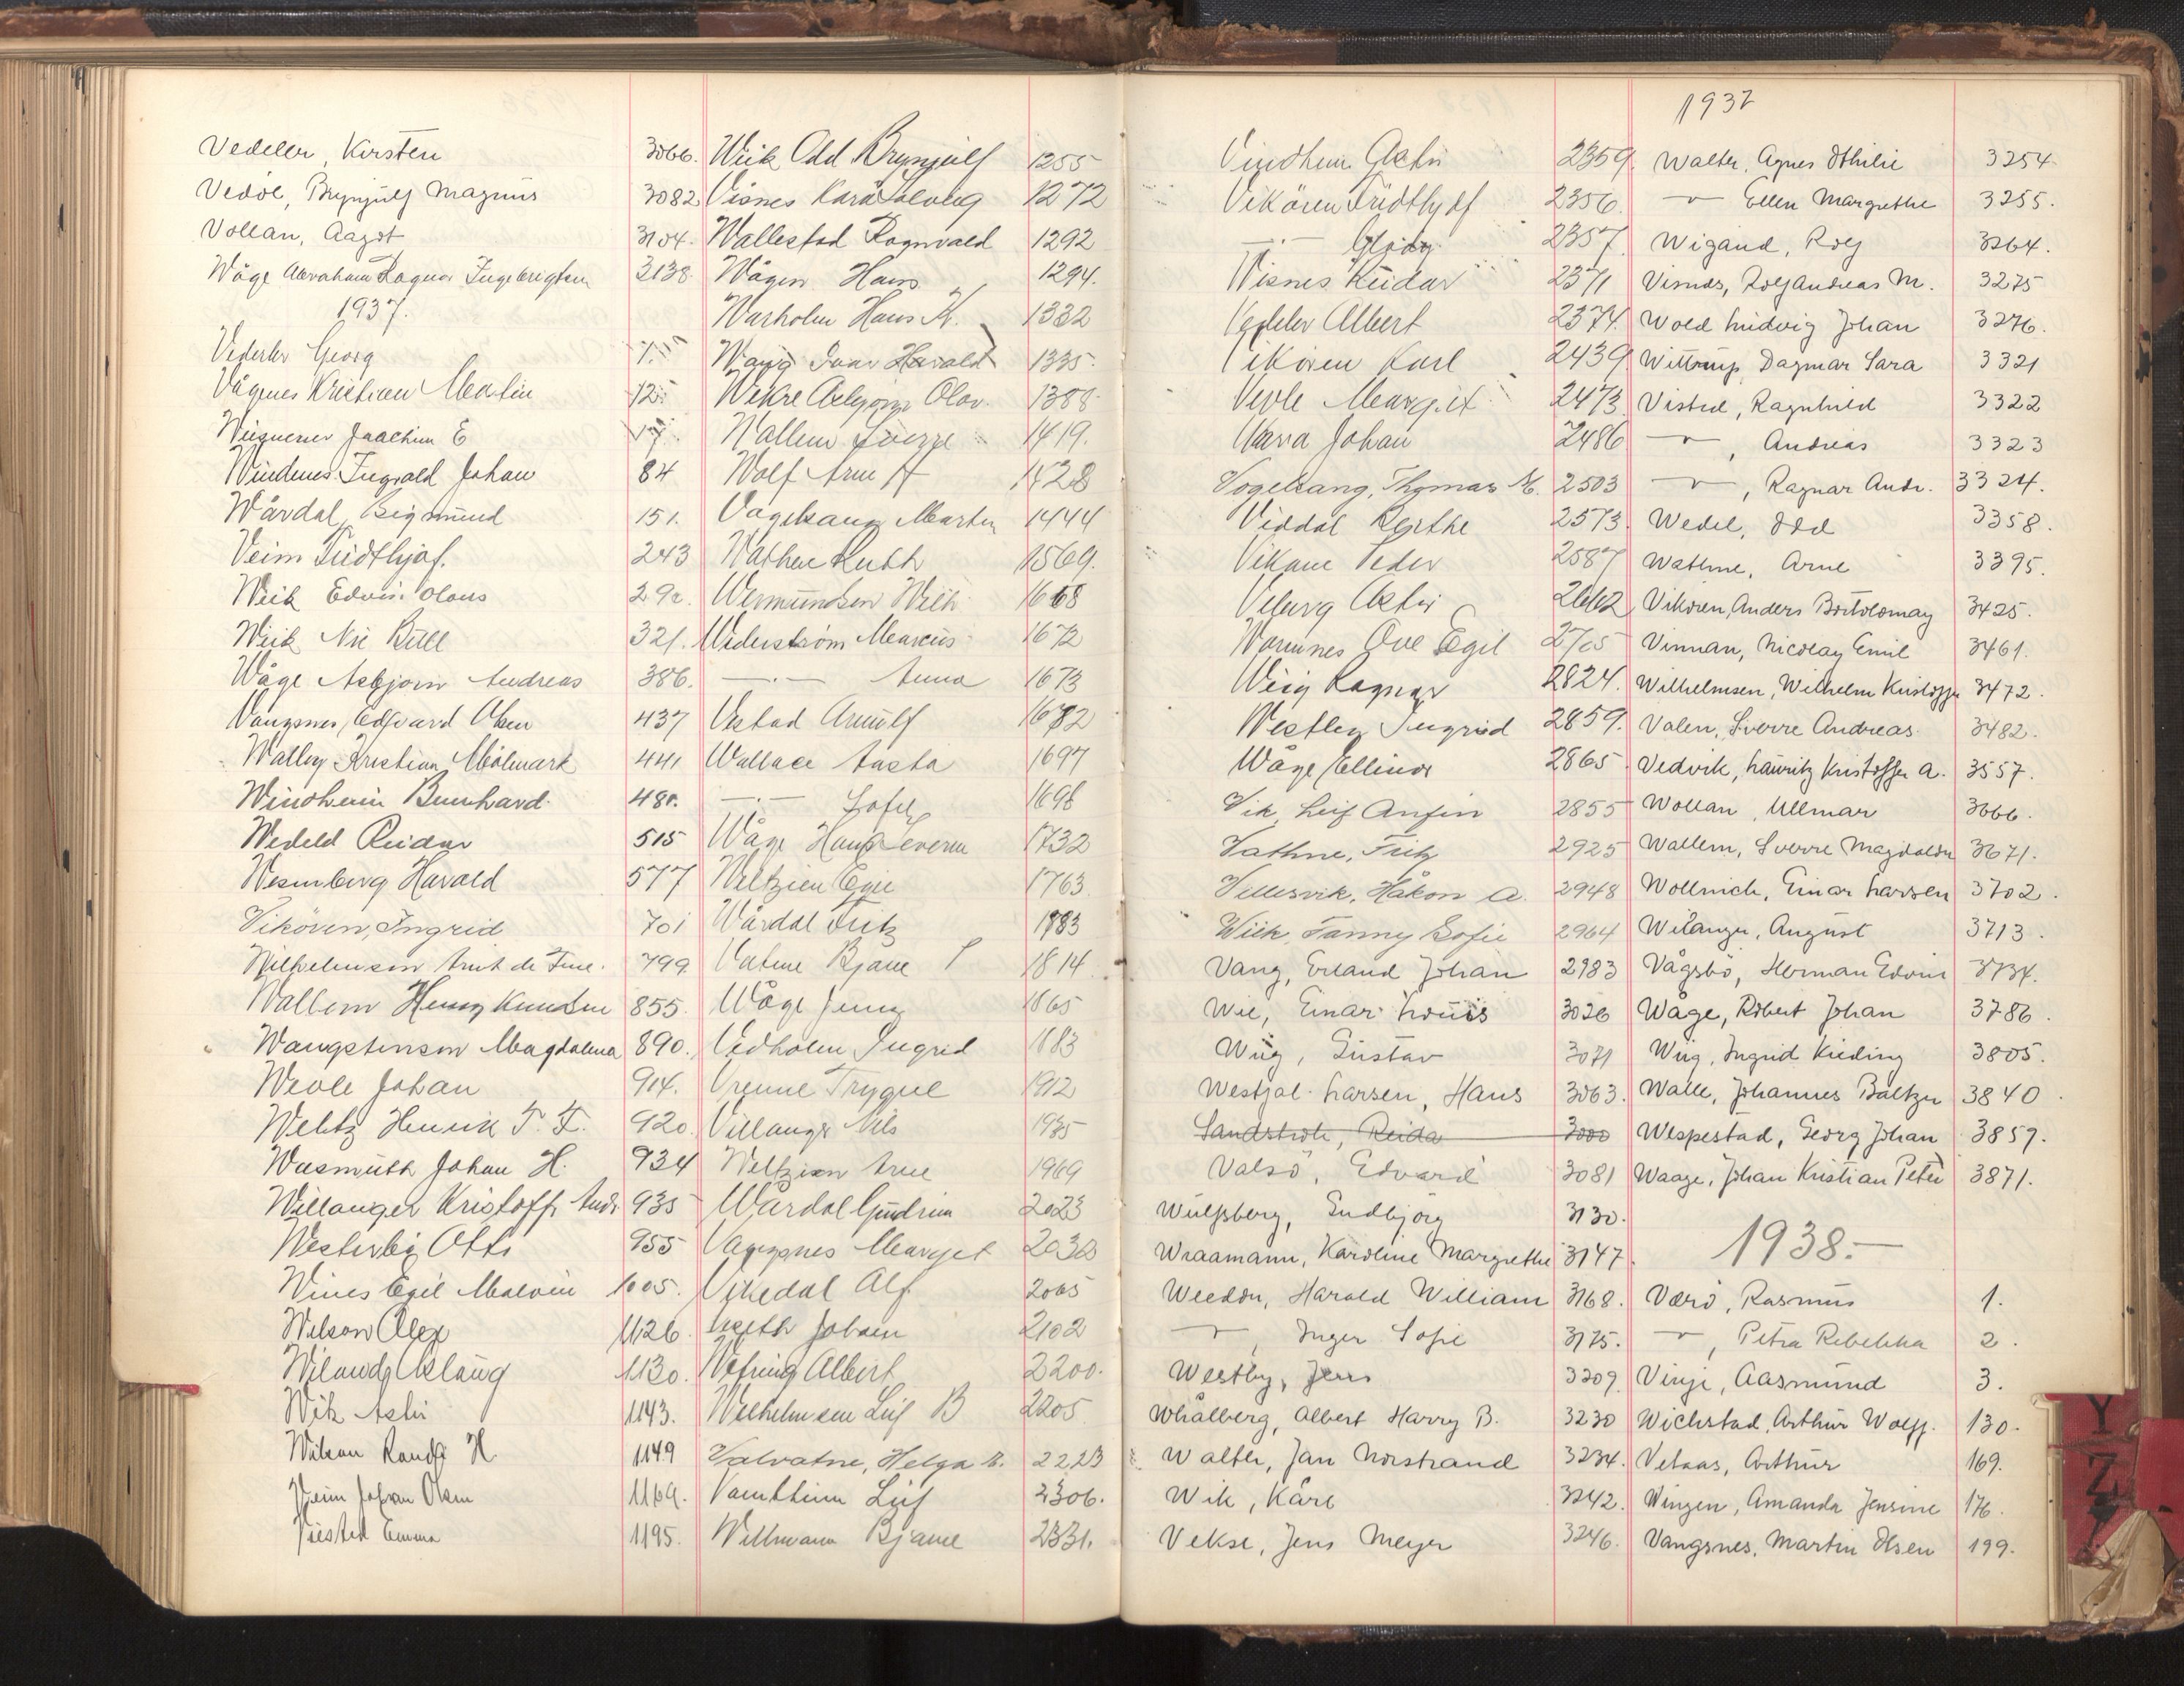 Vedeler, Kirsten 3066.
Vedöl, Brynjulf Magnus 3082
Vollan, Aagot 3104.
Wåge Abraham Ragnar Ingebrigtsen 3138
1937.
Vederler Georg 7.
Vågenes Kristian Martin 12
Joachim E
Vindenes Ingvald Johan 84
Wårdal, Sigmund 151.
Veim Fridthjof. 243
Wiik Edvin Olaus 292.
Wiik Nic Bull 321.
Wåge Asbjörn Andreas 386.
Vangsnes, Edvard Olsen 437
Kristian Mölmark 441
Windheim Bernhard. 480.
Wedeld Reidar 515
Wesenberg Harald 577
Viköven, Ingrid 701
Wilhelmsen Arnt de Fine. 799
Wallem Henry Knudsen 855.
Wangstensen Magdalena 890.
Wevle Johan 914.
Weltz Henrik F. F. 920.
Wasmuth Johan H. 934
Willanger Kristoffer Andr 935
Westerby Otto 955
Wines Egil Malvin 1005.
Wilson Olga 1126.
Wiland Aslaug 1130.
Wik Aslu 1143.
Wilson Randi H 1149
Veim Johan Olsen 1169.
Emma 1195.
Wiik Odd Brynjulf 1255
Visnes Kåra Solveig 1272
Wallestad Ragnvald 1292
Wågen Hans 1294.
Warholm Hans K. 1332
Wang Ivar Harald 1335.
Wekre Asbjörn Olav. 1388
Wallem Sverre 1419.
Wolf Arne A 1428
Vogelsang Marten 1444
Wathne Ruth 1569.
Wermundsen Wilh. 1668
Widerström Marcus 1672
—·— Anna 1673
Vestad Arnulf 1682
Wallace Aasta 1697
—·— Sofie 1698
Wåge Hans Severin 1732
Weltzien Egil 1763.
Wårdal Fritz 1783
Vatne Bjarne 1814
Wåge Jenny 1865
Vedholm Ingrid 1883
Vrenne Trygve 1912
Villanger Nils 1935
Weltzien Arne 1969
Wårdal Gudrun 2023
Vangsnes Margit 2030
Vikedal Alf 2065
Johan 2102
Wefring Albert 2200.
Wilhelmsen Leif B 2205
Valvatne, Helga 2223
Vamtheim Leif 2306.
Willmann Bjarne 2331.
Vindheim Astri 2359.
Vikören Fridthjof 2356
—·— 2357
Wisnes Reidar 2371
Vedeler Albert 2374.
Vikören Karl 2439
Vevle Margit 2473
Vaera Johan 2486
Vogelsang, Thomas M. 2503
Viddal Berthe 2573.
Vikane Peder 2587
Viberg Astri 2662
Varnnes Ove Egil 2705
Wiig Ragnar 2824.
Westley Ingrid 2859.
Wåge Ellinor 2865
Vik, Leif Anfin 2855
Vathne, Fritz 2925
Villesvik, Håkon A. 2948
Wiik, Fanny Sofie 2964
Vang, Erland Johan 2983
Wie, Einar Louis 3026
Wiig, Gustav 3071
Westfal-Larsen, Hans 3063.
Sandstrøk, Reida 3000
Valsö, Edvard 3081
Wülfsberg, Gudbjörg 3130.
Wraamann, Karoline Margrethe 3147.
Weedon, Harald William 3168.
—"—, Inger Sofie 3175.
Westby, Jens 3209.
Whålberg, Albert Harry B. 3230
Walter, Jan Norstrand 3234.
Wik, Kåre 3242.
Vekse, Jens Meyer 3246.
1937
Walter, Agnes Othilie 3254.
—"— Ellen Margrethe 3255.
Wigand, Rolf 3264.
Visnes, Rolf Andreas M. 3275
Wold Ludvig Johan 3276.
Wittrup, Dagmar Sara 3321
Visted, Ragnhild 3322
—"—, Andreas 3323
—"—, Ragnar Andr. 3324.
Wedel, Odd 3358.
Wathne, Arne 3395.
Vikören, Anders Bertolomay 3425.
Vinnan, Nicolay Emil 3461.
Wilhelmsen, Wilhelm Kristoffer 3472.
Valen, Sverre Andreas. 3482.
Vedvik, Lauritz Kristoffer A. 3557.
Wollan, Ullmar 3666.
Wallem, Sverre Magdalon 3671.
Wollnick, Einar Larsen 3702.
Wilanger, August 3713.
Vågsbö, Herman Edvin 3734.
Wåge, Robert Johan 3786.
Wiig, Ingrid Kieding 3805.
Walle, Johannes Baltzer 3840.
Wespestad, Georg Johan 3859.
Waage, Johan Kristian Peter 3871.
1938.—
Værö, Rasmus 1.
—"—, Petra Rebekka 2.
Vinje, Aasmund 3.
Wichstad, Arthur Wolff. 130.
Vetaas, Arthur 169.
Wingen, Amanda Jensine 176.
Vangsnes, Martin Olsen 199.
Y
Z